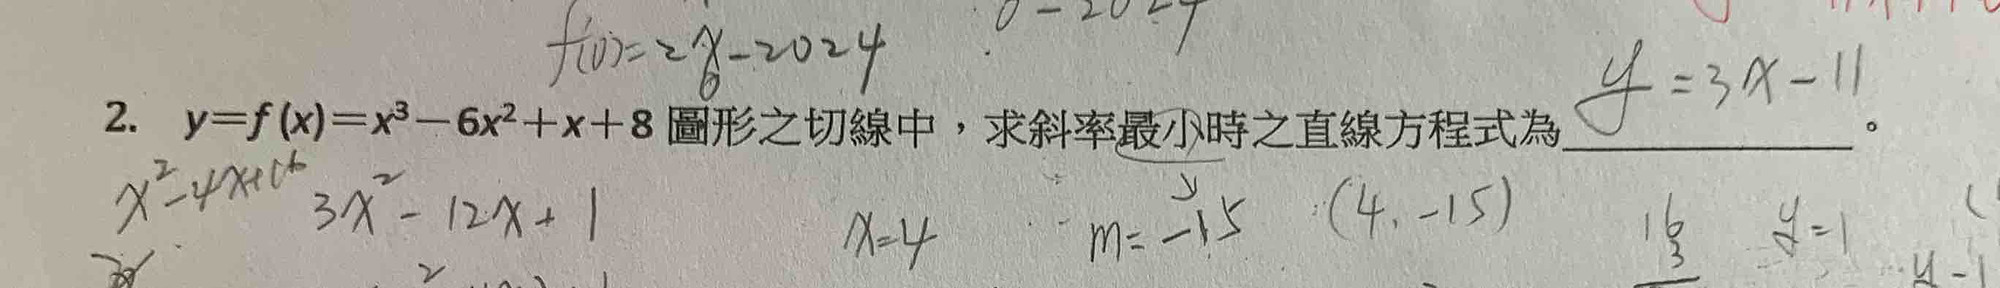 f'(0)=2x-2024
0-2024
2. y=f(x)=x³-6x²+x+8 圖形之切線中，求斜率最小時之直線方程式為 y=3x-11 。
x²-4x+16
3x²-12x+1
x=4
m=-15
(4,-15)
16
3
y=1
y-1